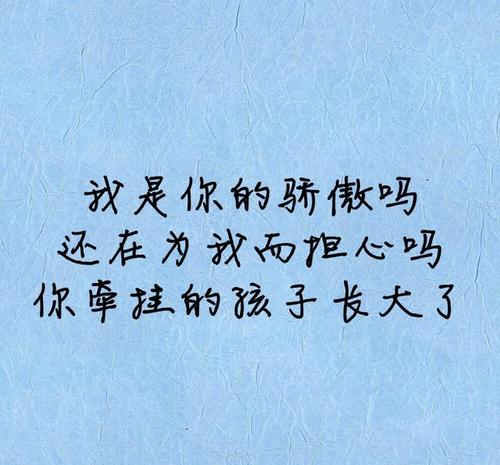 我是你的骄傲吗
还在为我而担心吗
你牵挂的孩子长大了